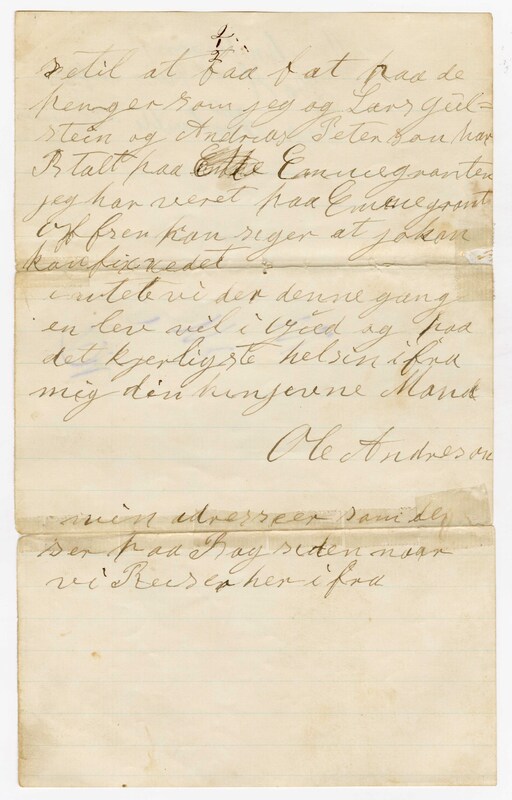 1/2
se til at faa fat paa de
penger som jeg og Lars gul=
stein og Andrias Peterson har
Btalt paa Emmegranten
jeg har veret paa Emmegrant
offsen han siger at johan
kan fixe det
intet vi der denne gang
en lev vel i Gud og paa
det kjerligste helsin ifra
mig din hengivne Mand
Ole Andreson
min adresseer som du
ser paa Bag siden naar
vi Reiser her ifra